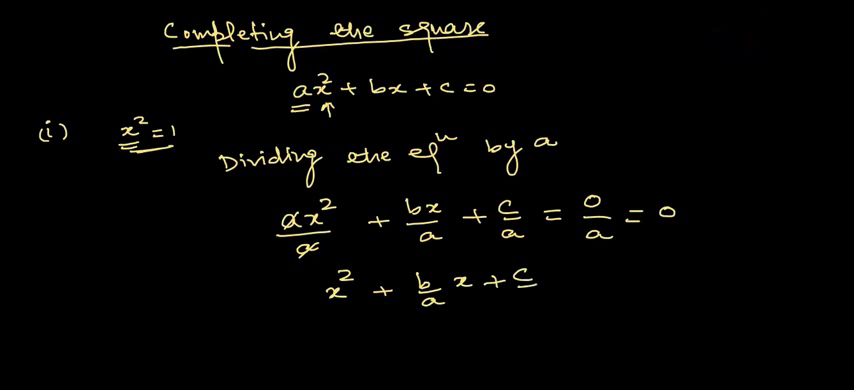 Completing the square
ax² + bx + c = 0
(i) x² = 1
Dividing the eqⁿ by a
ax²/a + bx/a + c/a = 0/a = 0
x² + b/a x + c